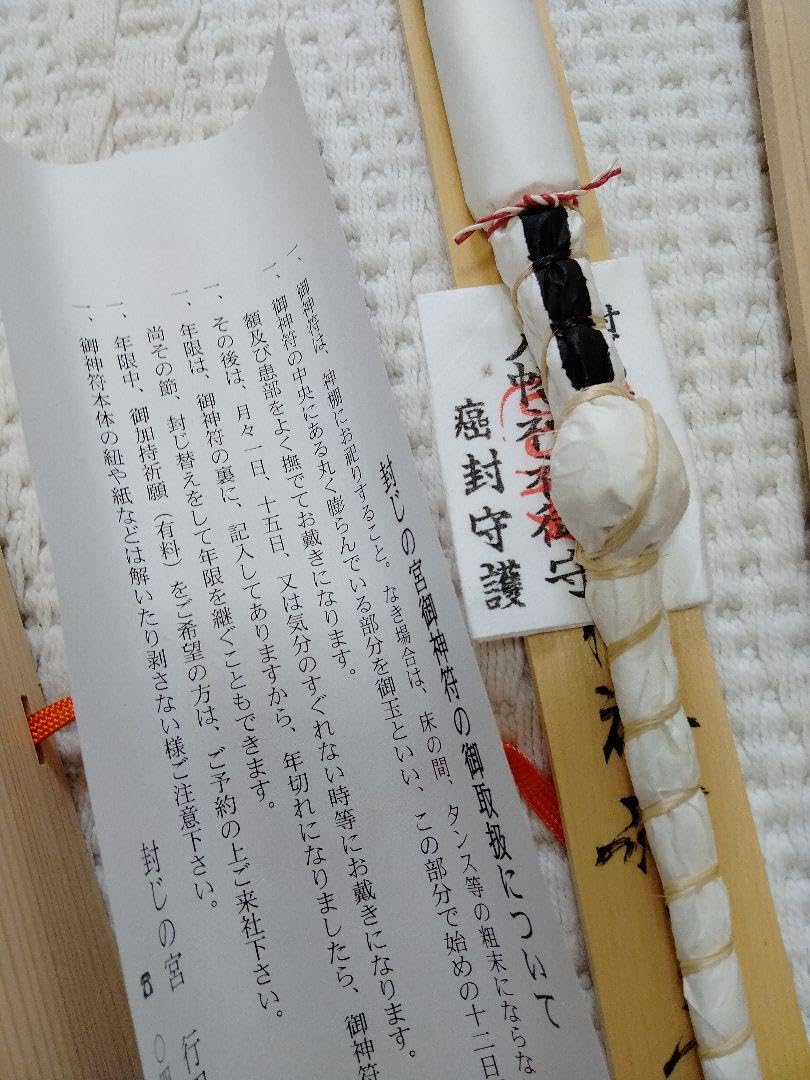 封じの宮御神符の御取扱について
一、御神符は、神棚にお祀りすること。なき場合は、床の間、タンス等の粗末にならな
一、御神符の中央にある丸く膨らんでいる部分を御玉といい、この部分で始めの十二日
額及び患部をよく撫でてお戴きになります。
一、その後は、月々一日、十五日、又は気分のすぐれない時等にお戴きになります。
一、年限は、御神符の裏に、記入してありますから、年切れになりましたら、御神符
尚その節、封じ替えをして年限を継ぐこともできます。
一、年限中、御加持祈願（有料）をご希望の方は、ご予約の上ご来社下さい。
一、御神符本体の紐や紙などは解いたり剥さない様ご注意下さい。
封じの宮 行田
守
癌封守護